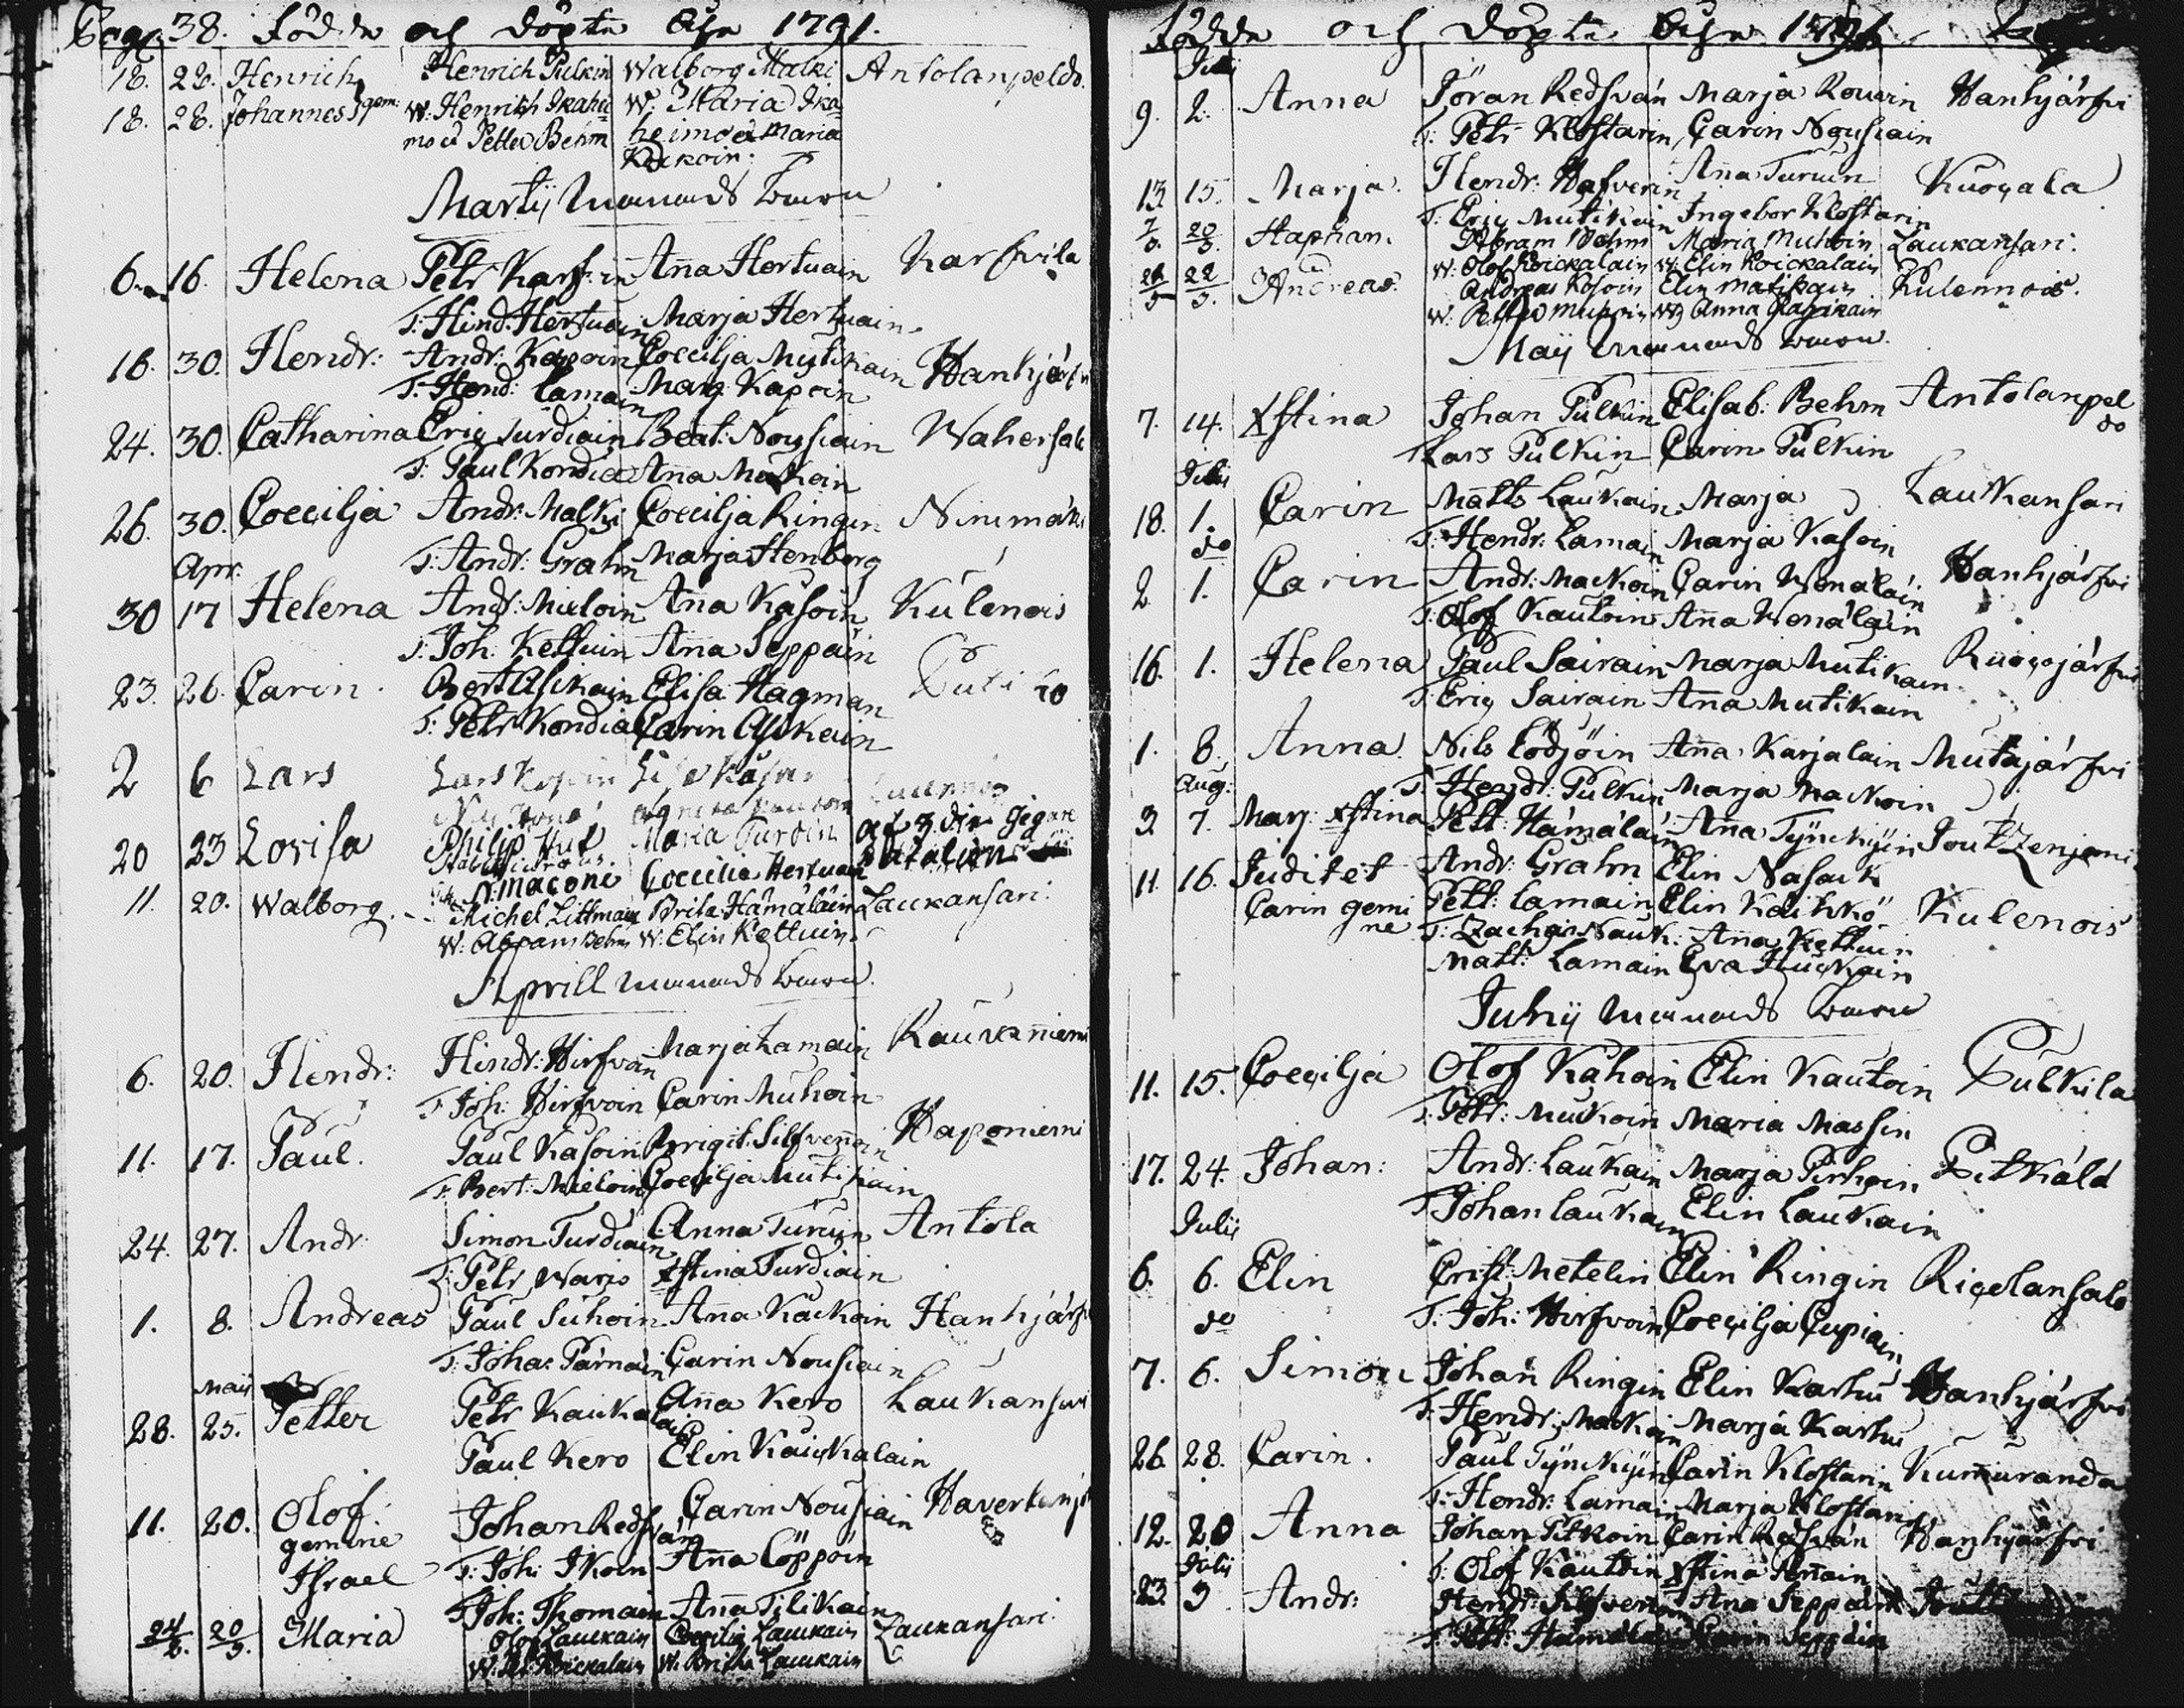 Pag. 38. Födde och döpte Åhr 1791.
18. 28. Henrich Henrich Pulkin Walborg Malki Antolanpeldo.
18. 28. Johannes gem: W: Henrich Ikahei W: Maria Ika
mo et Petter Behm heimo et Maria
Kakoin:
Martij månads barn
6. 16. Helena Petr Karf:in Aña Hertuain Karfvila
T: Hind. Hertuain Marja Hertuain
16. 30. Hendr: Andr: Kapoin Coecilja Mutikain Hanhjärfvi
T: Hend: Lamain Marg: Kapoin
24. 30. Catharina Eric Turdiain Beat: Nousiain Wahersalo
T: Paul Kondia Aña Mackoin
26. 30. Coecilja Andr: Malki Coecilja Ringin Ninimäki
Apr. T: Andr: Grahn Marja Stenborg
30 17 Helena Andr: Mieloin Aña Kasoin Kulenois
T: Joh. Kettuin Aña Seppäin
23. 26. Carin. Bert Asikain Elisa Hagman Putiko
T: Petr Kondia Carin Asikain
2 6 Lars Lars Lisa
20 23 Lovisa Philip Maria Turdin
Coecilia Hertuain Batalion
11. 20. Walborg Michel Littmain Brita Hämäläin Laukansari:
W: Abram Behm W: Elin Kettuin
Aprill månads barn.
6. 20. Hendr: Hindr: Hirfvon Marja Lamain Raukaniemi
T Joh: Hirfvoin Carin Muhoin
11. 17. Paul. Paul Kasoin Brigit: Silfvenoin Haponiemi
T: Bert: Mieloin Coecilja Mutikain
24. 27. Andr: Simon Turdiain Anna Turuin Antola
T: Petr Waris Xstina Turdiain
1. 8. Andreas Paul Suhoin Aña Kackoin Hanhjärfvi
T: Johan Pärnäin Carin Nousiain
Maij
28. 25. Petter Petr Kaukalain Aña Kero Laukansari
Paul Kero Elin Kaickalain
11. 20. Olof Johan Redsvän Carin Nousiain
gemine
Israel T: Joh: Ikoin Aña Cöppöin
T Joh: Thomain Aña Tilikain
24/2. 20/3. Maria Olof Laukain Coecilia Laukain Laukansari:
W: Brita Laukain
Födde och döpte Åhr 1791
Julij
9. 2. Anna Jöran Redsvän Marja Rouvin Hanhjärfvi
T: Petr Klostarin Carin Nousiain
13. 15. Marja Hendr: Hafverin Aña Turuin Kuocala
T: Eric Mutikain Ingebor Klostarin
7/3. 20/3. Staphan. Abram Behm Maria Muhoin Laukansari:
W: Olof Koickalain W: Elin Koickalain
22/3. Andreas. Andreas Kosoin Elin Matikain Kulennois.
W: Petter Muhoin W:
Maij månads barn.
7. 14. Xstina Johan Pulkin Elisab: Behm Antolanpel
do
T Lars Pulkin Carin Pulkin
Julij
18. 1. Carin Matts Laukain Marja Laukansari
do T: Hendr: Lamain Marja Kasoin
2. 1. Carin Andr: Mackoin Carin Wenäläin Hanhjärfvi
T: Olof Kautoin Aña Wenäläin
16. 1. Helena Paul Sairain Marja Mutikain Ruocojärfvi
T Eric Sairain Aña Mutikain
1. 8. Anna. Nils Lödjöin Aña Karjalain Mutajärfvi
Aug: T: Hendr: Pulkin Marja Mackoin
3. 7. Marg: Xstina Pett: Hämäläin Aña Tynckyin
11. 16. Juditet Andr: Grahn Elin Nasack
Carin gemi Pett: Lamain Elin Kaihkö Kulenois
ne T: Zachar: Nauk: Aña Kettuin
Matt: Lamain Eva Huckain
Junij månads barn
11. 15. Coecilja Olof Kähoin Elin Kautoin Pulkila
T: Petr: Muckoin Maria Massin
17. 24. Johan: Andr: Laukain Marja Pirhoin Pitkälä
Julij T Johan Laukain Elin Laukain
6. 6. Elin Crist: Metelin Elin Ringin Ricelansalo
do T: Joh: Hirfvoin Coecilja Cupiain
7. 6. Simon Johan Ringin Elin Karhu Hanhjärfvi
T: Hendr: Mackoin Marja Karhu
26. 28. Carin. Paul Tynckyin Carin Klostarin Kumuranda
T: Hendr: Lamain Marja Klostarin
12. 20 Anna Johan Pitkoin Carin Redsvän Hanhjärfvi
Julij T: Olof Kautoin Xstina
23. 3 Andr: Hendr: Silfvenoin Aña Seppäin
T: Pett: Hämäläin Carin Seppäin